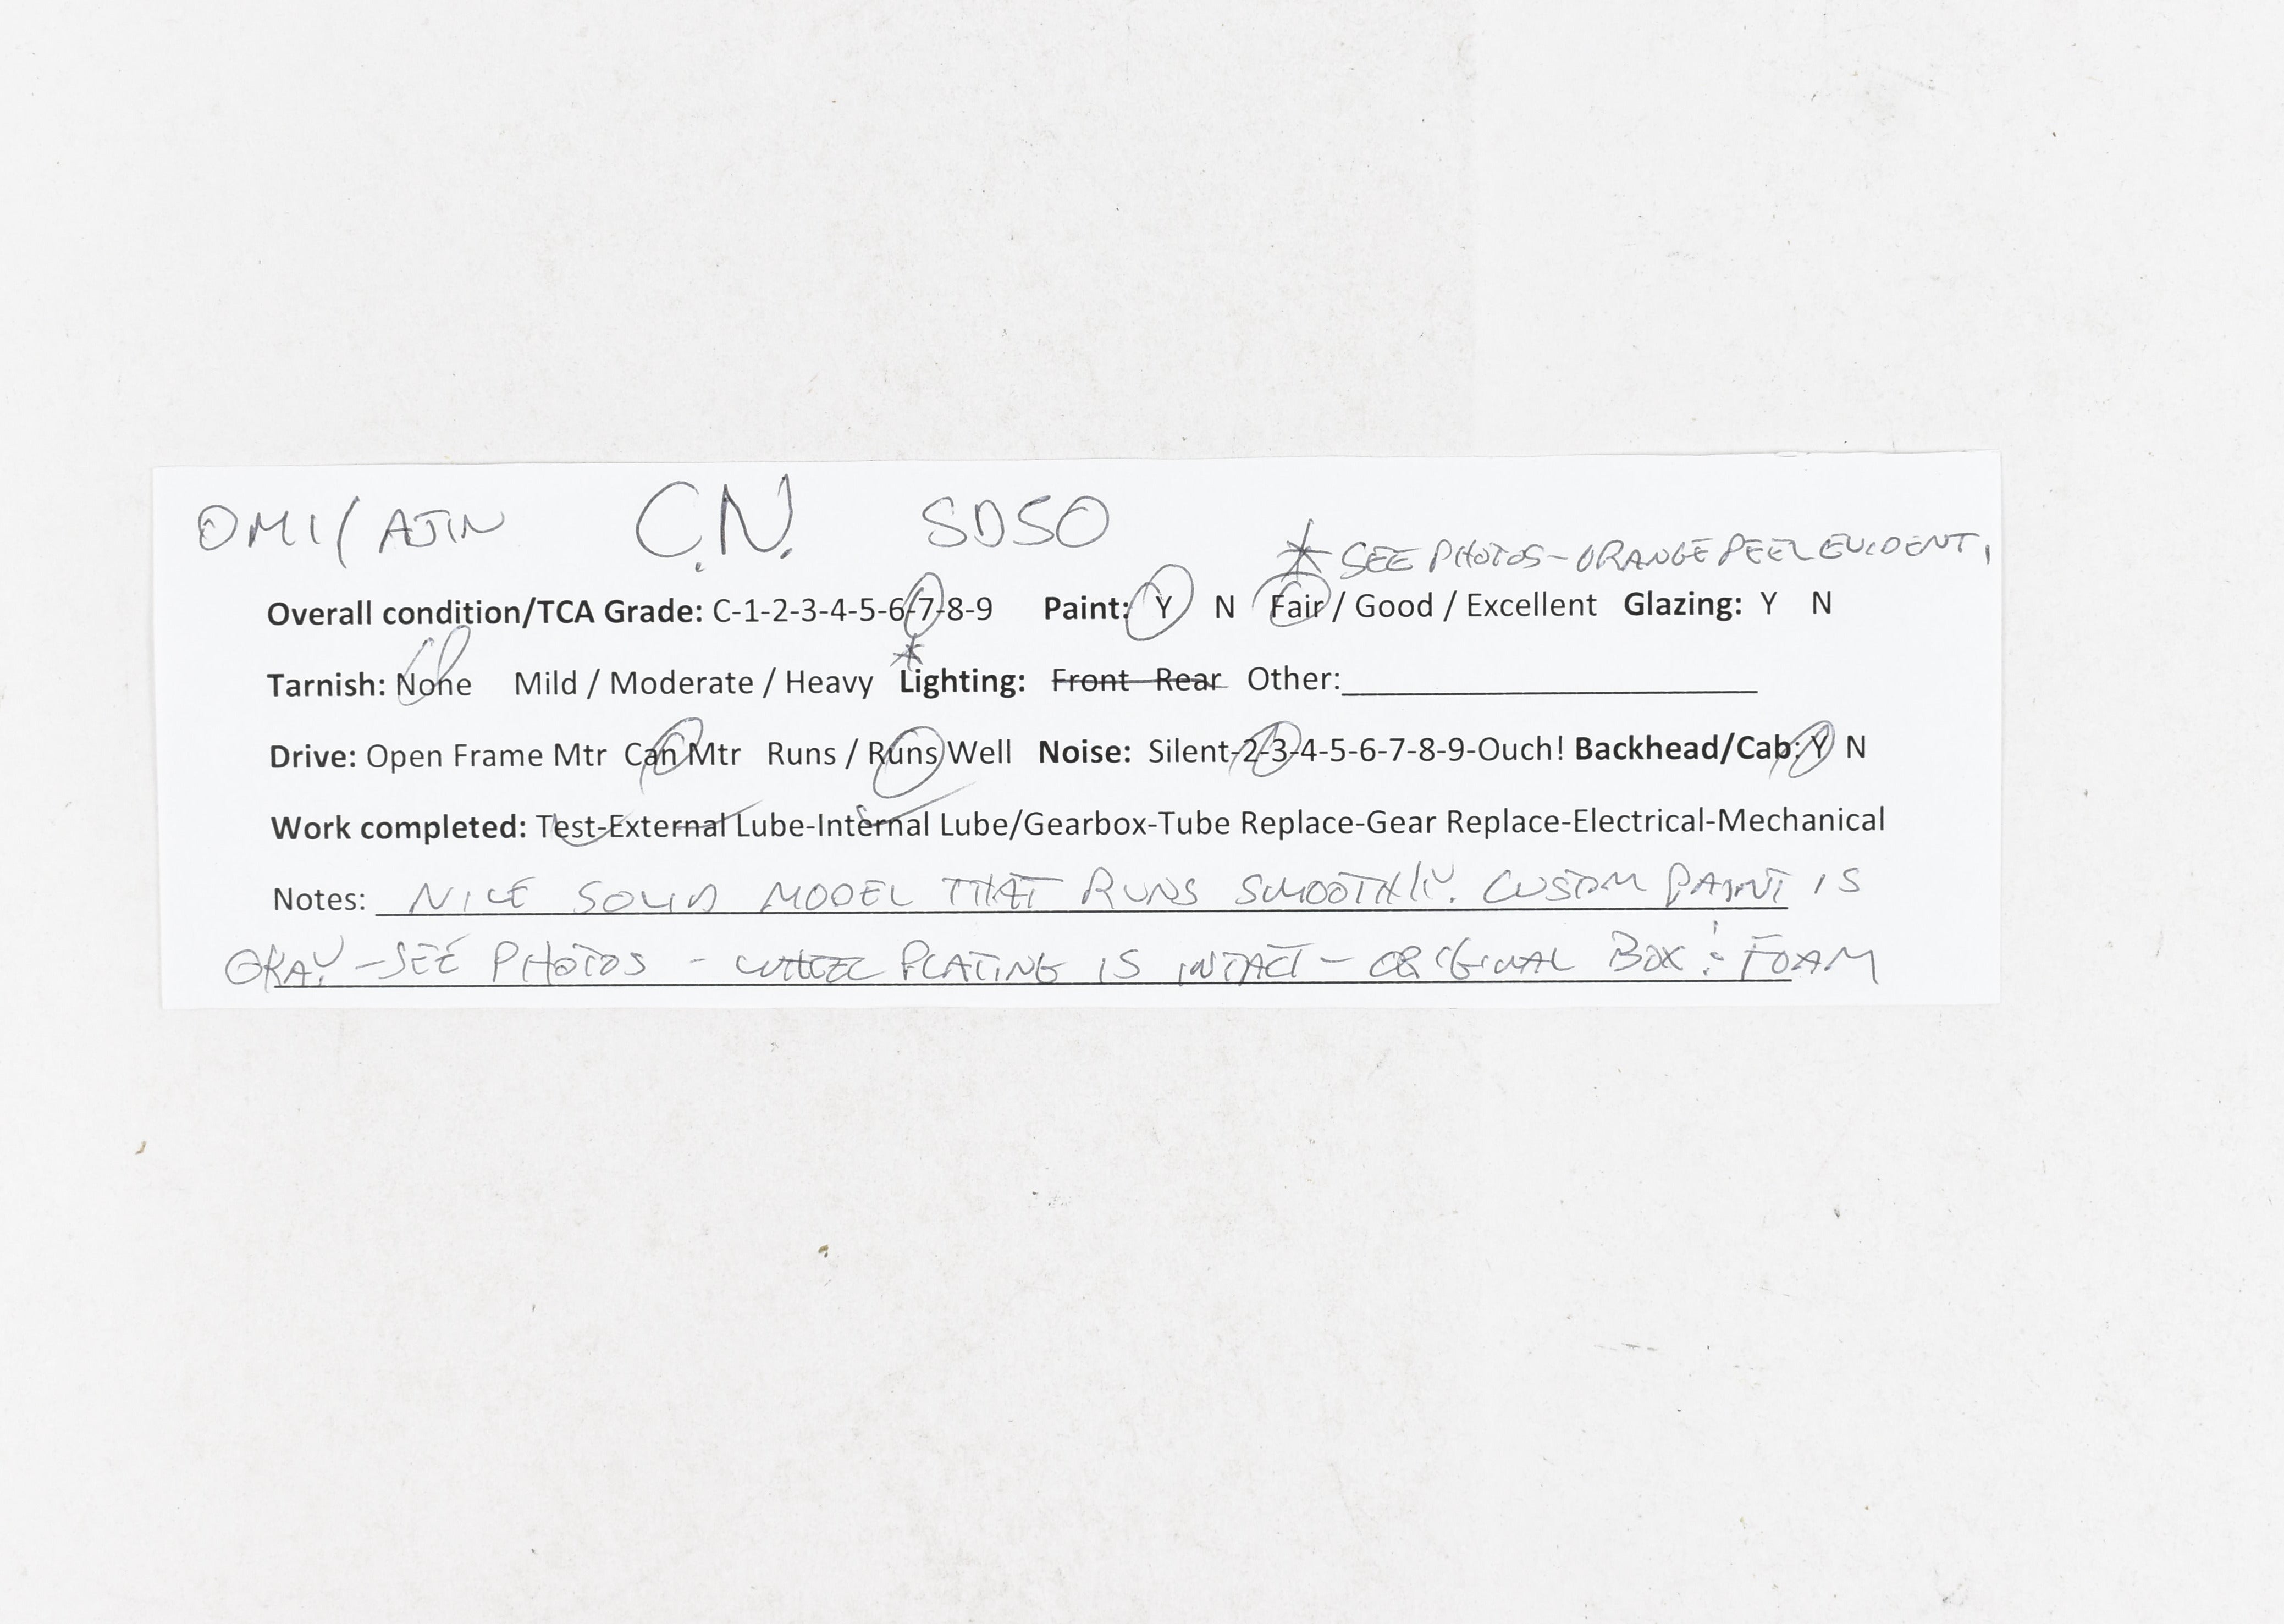 OMI/AJIN C.N. SD50
* SEE PHOTOS-ORANGE PEEL EVIDENT,
Overall condition/TCA Grade: C-1-2-3-4-5-6-7-8-9 Paint: Y N Fair / Good / Excellent Glazing: Y N
Tarnish: None Mild / Moderate / Heavy * Lighting: Front Rear Other:
Drive: Open Frame Mtr Can Mtr Runs / Runs Well Noise: Silent-2-3-4-5-6-7-8-9-Ouch! Backhead/Cab: Y N
Work completed: Test-External Lube-Internal Lube/Gearbox-Tube Replace-Gear Replace-Electrical-Mechanical
Notes: NICE SOLID MODEL THAT RUNS SMOOTHLY. CUSTOM PAINT IS
OKAY -SEE PHOTOS - WHEEL PLATING IS INTACT - ORIGINAL BOX & FOAM